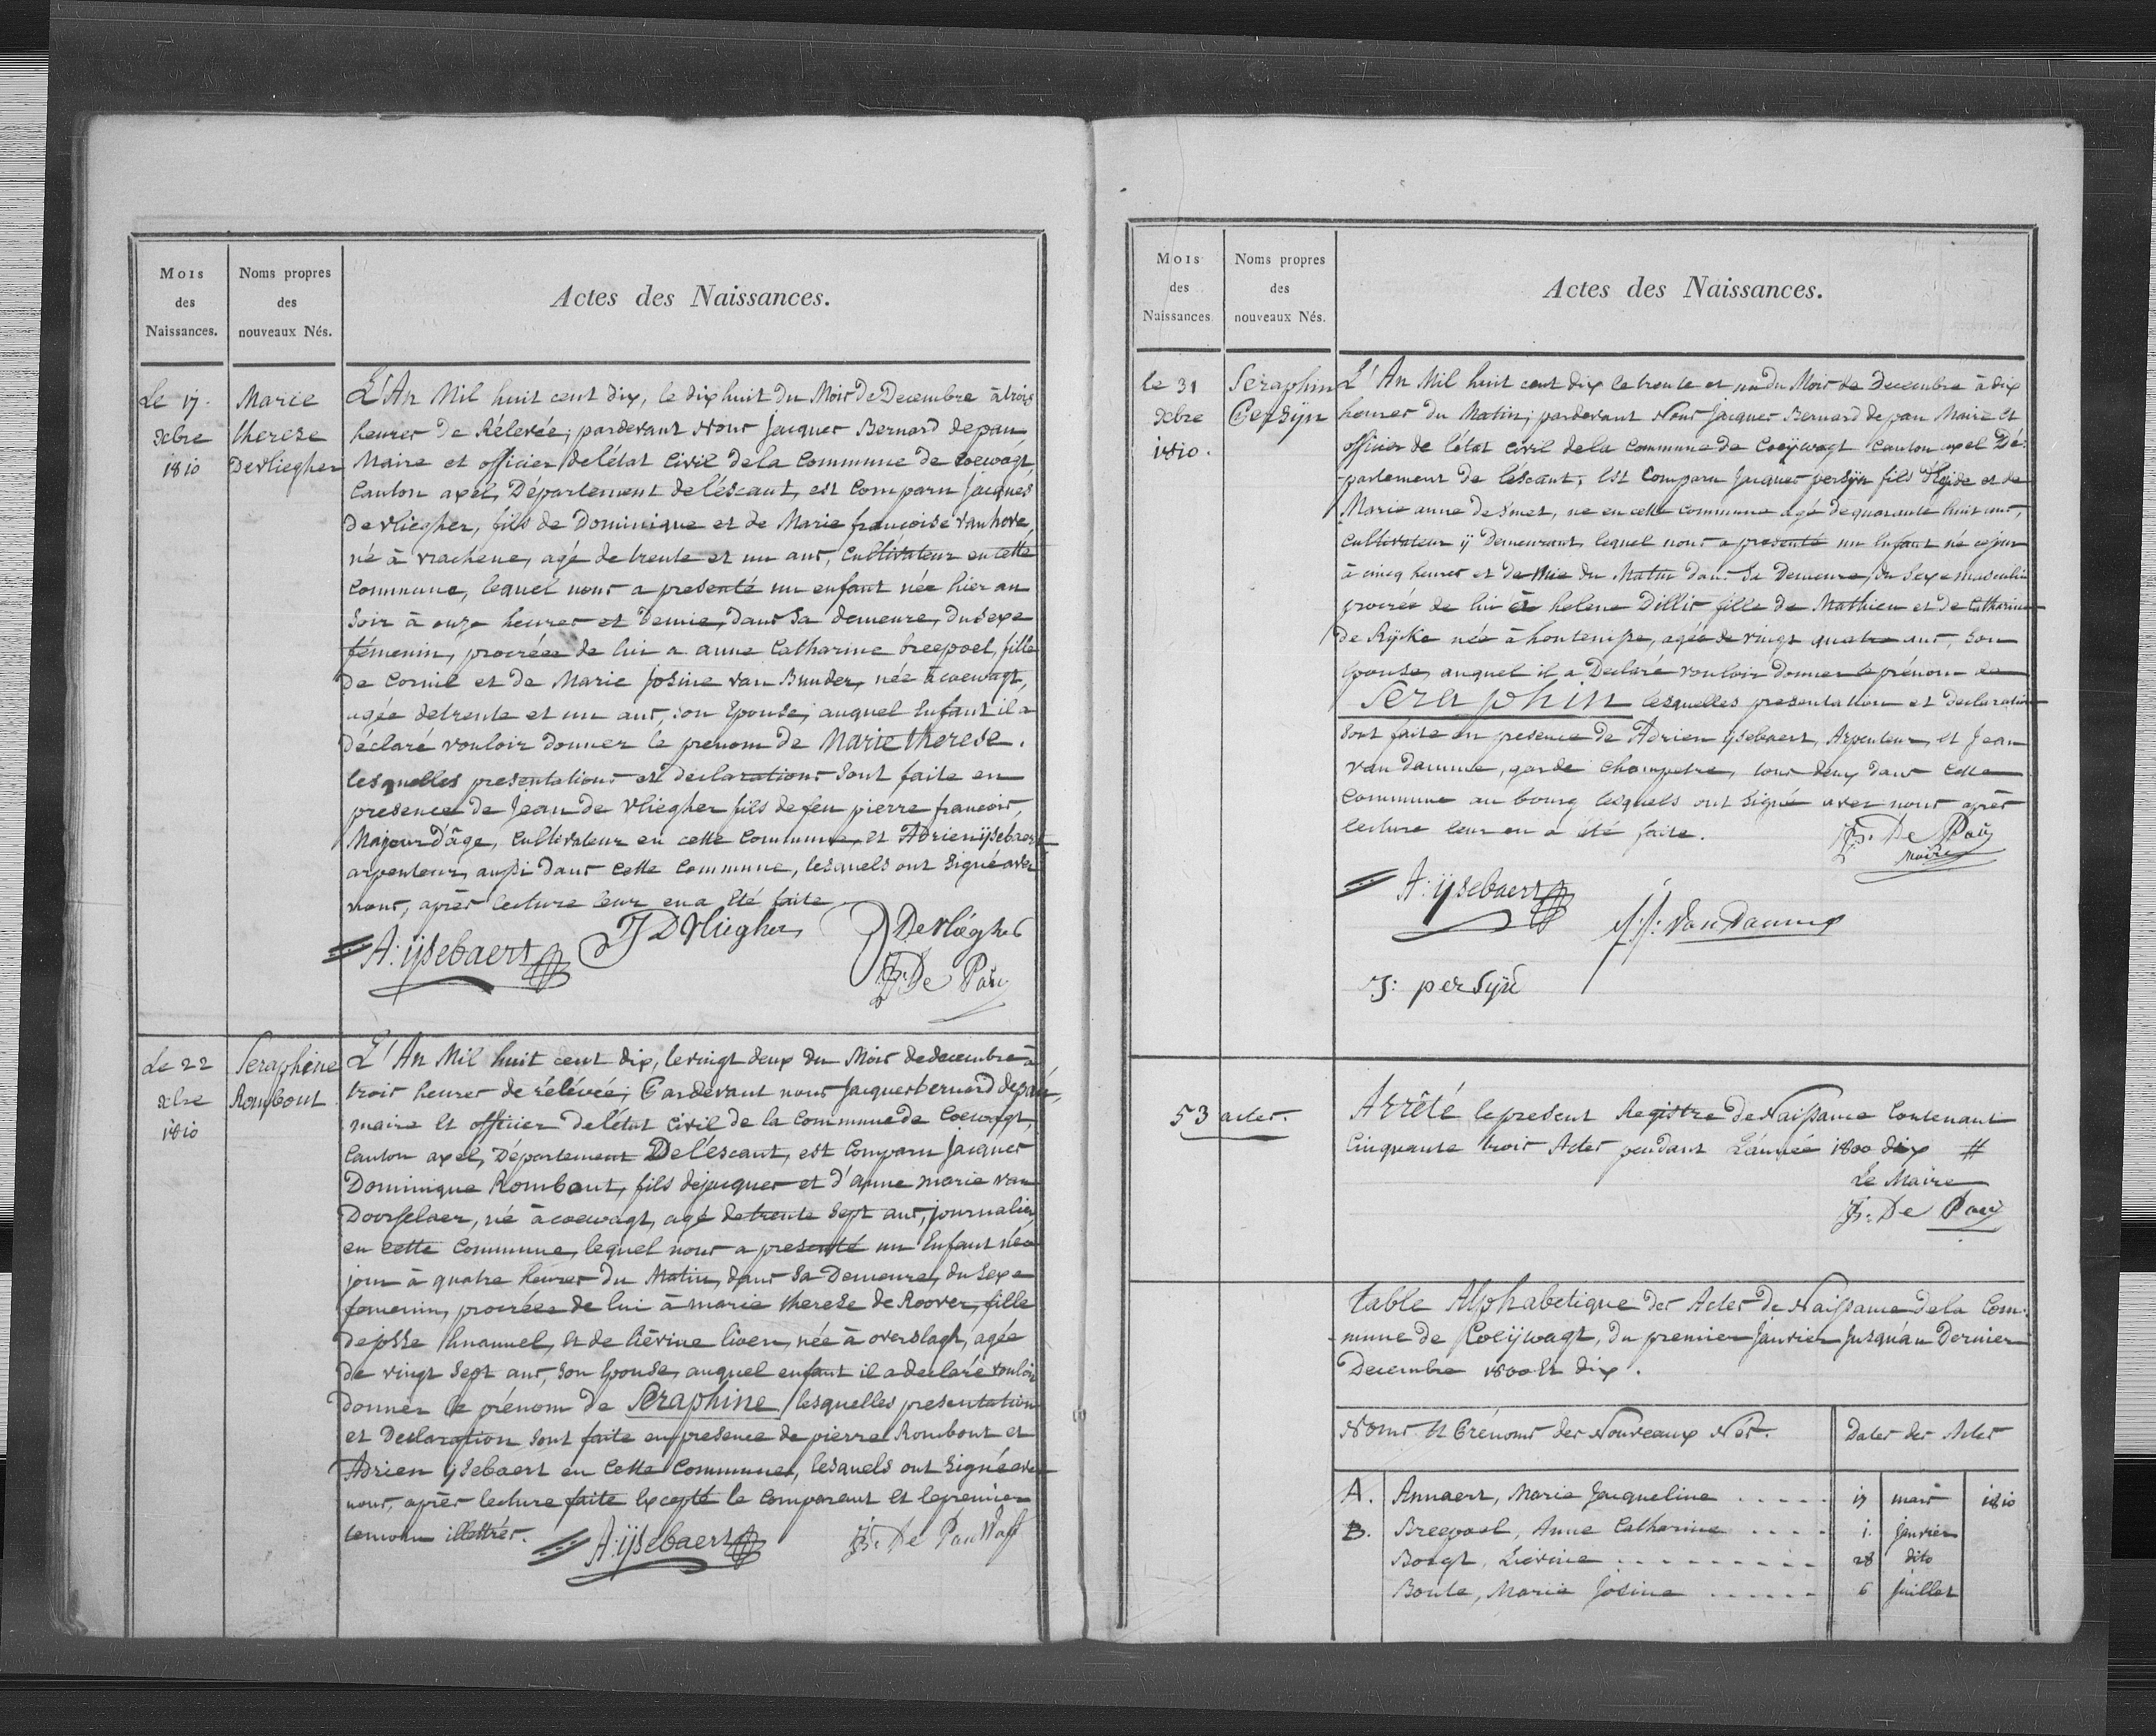 Mois
des
Naissances.
Noms propres
des
nouveaux Nés.
Actes des Naissances.
Le 17.
Xbre
1810
Marie
therese
Devliegher
L'An Mil huit cent dix, le dix huit du Mois De Decembre à trois
heures de Rélevée; pardevant Nous Jacques Bernard depau,
Maire et officier de l'état Civil de la Commune de Coewagt,
Canton axel, Département de l'éscaut, est Comparu Jacques
de vliegher, fils de Dominique et de Marie françoise vanhove,
né à vrachene, agé de trente et un ans, Cultivateur en cette
Commune, lequel nous a presenté un enfant née hier au
Soir à onze heures et demie, dans Sa demeure, du Sexe
fémenin, procréée de lui a anne Catharine breepoel, fille
de Cornil et de Marie Josine van Bunder, née à coewagt,
agée de trente et un ans, son Epouse; auquel Enfant il a
déclaré vouloir donner le prenom de Marie therese.
lesquelles presentations et declarations Sont faite en
presence de Jean de Vliegher fils de feu pierre francois,
Majeur D'âge, Cultivateur en cette Commune, et Adrien ijsebaert
arpenteur, aussi dans Cette Commune, lesquels ont Signé avec
nous, après lecture leur en a Eté faite
A: ijsebaert
J D Vliegher
J Devliegher
JB: De Pau
Le 22
xbre
1810
Seraphine
Rombout
L'An Mil huit cent dix, le vingt deux du Mois de decembre à
trois heures de rélévée; Pardevant nous Jacques bernard depau,
maire et officier de l'état Civil de la Commune de Coewagt,
Canton axel, Département De l'éscaut, est Comparu Jacques
Dominique Rombout, fils de jacques et d'anne marie van
Doorselaer, né à coewagt, agé de trente Sept ans, journalier
en cette Commune, lequel nous a presenté un Enfant née
jour à quatre heures du Matin, dans Sa Demeure, du Sexe
femenin, procréée de lui à marie therese de Roover, fille
de josse Emanuel, et de liévine liven, née à overslagh, agée
de vingt Sept ans, son Epouse, auquel enfant il a declaré vouloir
donner le prénom de Seraphine, lesquelles presentation
et Declaration Sont faite en presence de pierre Rombout et
Adrien ijsebaert en Cette Commune, lesquels ont Signé avec
nous, après lecture faite Excepté le Comparant et le premier
temoin illettrés.
A: ijsebaert
JB: De Pau
Mois
des
Naissances
Noms propres
des
nouveaux Nés.
Actes des Naissances.
le 31
Xbre
1810.
Seraphin
Persijn
L'An Mil huit cent dix le trente et un du Mois de Decembre à dix
heures du Matin; pardevant Nous Jacques Bernard de pau Maire et
officier de l'état civil de la Commune de Coeijwagt Canton axel Dé-
-partement de l'éscaut, Est Comparu Jacques persijn fils d'Egide et de
Marie anne de Smet, né en cette commune agé de quarante huit ans,
Cultivateur ij Demeurant, lequel nous a presenté un Enfant né ce jour
à cinq heures et demie du Matin dans Sa Demeure, du Sexe masculin
procréé de lui et helene Dillis fille de Mathieu et de Catharine
de Rijcke née à hontenisse, agée de vingt quatre ans, Son
Epouse, auquel il a Declaré vouloir donner le prénom de
Seraphin lesquelles presentation et declaration
Sont faite en presence de Adrien ijsebaert, Arpenteur, et Jean
van damme, garde Champetre, tous deux dans Cette
Commune au bourg lesquels ont Signé avec nous après
lecture leur en a été faite.
JB: De Pau
Maire
A: ijsebaert
J:J: Van Damme
J: persijn
53 actes.
Arrêté le present Registre de Naissance Contenant
Cinquante trois Actes pendant L'année 1800 dix #
Le Maire
JB: De Pau
Table Alphabetique des Actes de Naissance de la Com-
-mune de Coeijwagt, du premier Janvier Jusqu'au Dernier
Decembre 1800 et dix.
Noms Et Prénoms des Nouveaux Nés.
Dates des Actes
A. Annaert, Marie Jacqueline ..... 17 mars 1810
B. Breepoel, Anne Catharine .... 1. janvier
Bongt, Livine ......... 28 dito
Boute, Marie Josine ...... 6 juillet